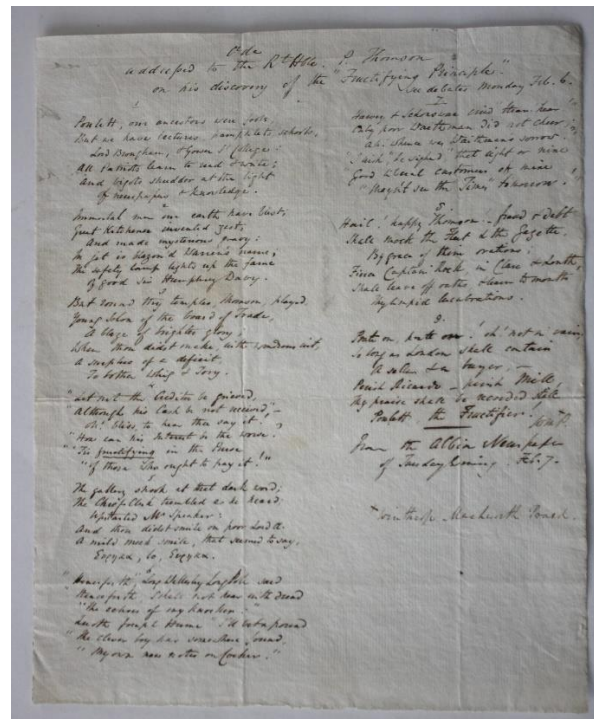 Ode
addressed to the Rt Hble. P. Thomson
on his discovery of the "Fructifying Principle"
See debates Monday Feb. 6.
1
Poulett, our ancestors were fools,
But we have lectures, pamphlets, schools,
Lord Brougham, & Gower St College:
All patriots learn to read & write;
And bigots shudder at the light
Of newspapers & knowledge.
2
Immortal men our earth have blest,
Great Kitchener invented zest,
And made mysterious gravy:
In jet is blazon'd Warren's name;
The safety lamp lights up the fame
Of good Sir Humphrey Davy.
3
But round thy temples, Thomson, played,
Young Solon of the Board of Trade,
A blaze of brighter glory;
When thou didst make, with wondrous wit,
A surplus of a deficit,
To bother Whig & Tory.
4
"Let not the Creditor be grieved,
"Although his Cash be not received",
Oh! bliss, to hear thee say it!
"How can his Interest be the worse
"'Tis fructifying in the Purse
"Of those who ought to pay it!"
The gallery shook at that dark word;
The Chief Clerk trembled as he heard;
Upstarted Mr Speaker:
And thou didst smile on poor Lord A.
A mild meek smile, that seemed to say,
Eugyax, lo, Eugyax.
"Henceforth, Long Wellesley Long Pole said
"Henceforth I shall not hear with dread
"The echoes of my knocker."
Quoth Joseph Hume "I'll bet a pound
"The clever boy has somewhere found
"My own new notes on Cocker."
7
Harvey & Schonswar cried them hear
Only poor Waithman did not cheer;
Ah, whence was Waithman's sorrow
"Wish," he sighed, "that eight or nine
Good liberal customers of mine
"Mayn't see the Times tomorrow."
8
Hail! happy Thomson - fraud & Debt
Shall mock the Fleet & the Gazette
By grace of them orations:
Fierce Captain Rock, in Clare & Louth,
Shall leave off oaths, & learn to mouth
Thy limpid lucubrations.
9
Prate on, prate on! oh! not in vain,
So long as London shall contain
A seller & a buyer;
Perish Ricardo - perish Mill,
Thy praise shall be recorded still
Poulett, the Fructifier!
WMP.
From the Albion Newspaper
of Tuesday Evening Feb. 7.
Winthrop Mackworth Praed.